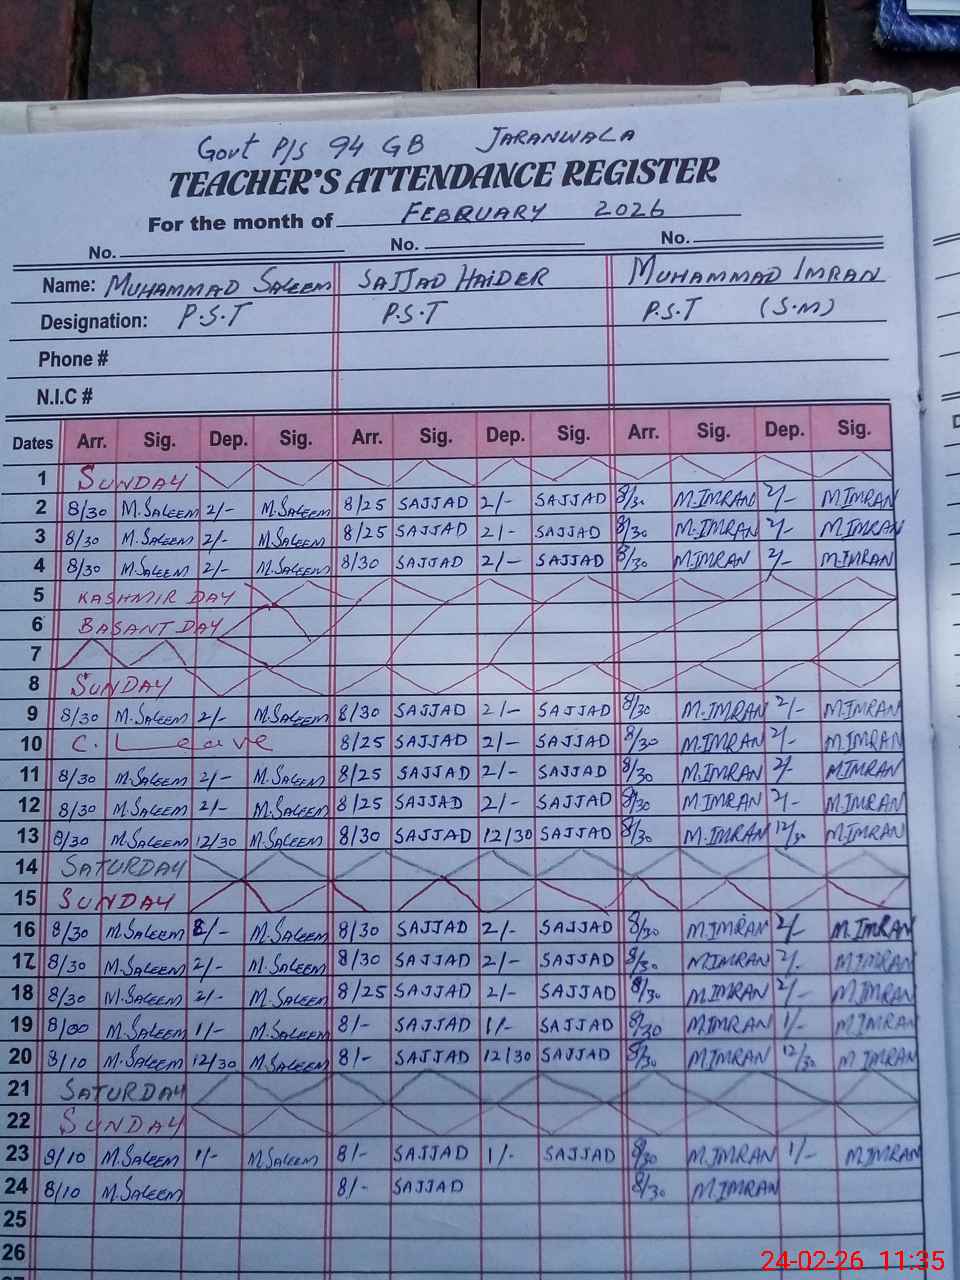 Govt P/S 94 GB JARANWALA
TEACHER'S ATTENDANCE REGISTER
For the month of FEBRUARY 2026
No. No. No.
Name: MUHAMMAD SALEEM SAJJAD HAIDER MUHAMMAD IMRAN
Designation: P.S.T P.S.T P.S.T (S.M)
Phone #
N.I.C #
Dates Arr. Sig. Dep. Sig. Arr. Sig. Dep. Sig. Arr. Sig. Dep. Sig.
1 SUNDAY
2 8/30 M.SALEEM 2/- M.SALEEM 8/25 SAJJAD 2/- SAJJAD 8/30 M.IMRAN 2/- M.IMRAN
3 8/30 M.SALEEM 2/- M.SALEEM 8/25 SAJJAD 2/- SAJJAD 8/30 M.IMRAN 2/- M.IMRAN
4 8/30 M.SALEEM 2/- M.SALEEM 8/30 SAJJAD 2/- SAJJAD 8/30 M.IMRAN 2/- M.IMRAN
5 KASHMIR DAY
6 BASANT DAY
7
8 SUNDAY
9 8/30 M.SALEEM 2/- M.SALEEM 8/30 SAJJAD 2/- SAJJAD 8/30 M.IMRAN 2/- M.IMRAN
10 C. Leave 8/25 SAJJAD 2/- SAJJAD 8/30 M.IMRAN 2/- M.IMRAN
11 8/30 M.SALEEM 2/- M.SALEEM 8/25 SAJJAD 2/- SAJJAD 8/30 M.IMRAN 2/- M.IMRAN
12 8/30 M.SALEEM 2/- M.SALEEM 8/25 SAJJAD 2/- SAJJAD 8/30 M.IMRAN 2/- M.IMRAN
13 8/30 M.SALEEM 12/30 M.SALEEM 8/30 SAJJAD 12/30 SAJJAD 8/30 M.IMRAN 12/30 M.IMRAN
14 SATURDAY
15 SUNDAY
16 8/30 M.SALEEM 2/- M.SALEEM 8/30 SAJJAD 2/- SAJJAD 8/30 M.IMRAN 2/- M.IMRAN
17 8/30 M.SALEEM 2/- M.SALEEM 8/30 SAJJAD 2/- SAJJAD 8/30 M.IMRAN 2/- M.IMRAN
18 8/30 M.SALEEM 2/- M.SALEEM 8/25 SAJJAD 2/- SAJJAD 8/30 M.IMRAN 2/- M.IMRAN
19 8/00 M.SALEEM 1/- M.SALEEM 8/- SAJJAD 1/- SAJJAD 8/30 M.IMRAN 1/- M.IMRAN
20 8/10 M.SALEEM 12/30 M.SALEEM 8/- SAJJAD 12/30 SAJJAD 8/30 M.IMRAN 12/30 M.IMRAN
21 SATURDAY
22 SUNDAY
23 8/10 M.SALEEM 1/- M.SALEEM 8/- SAJJAD 1/- SAJJAD 8/30 M.IMRAN 1/- M.IMRAN
24 8/10 M.SALEEM 8/- SAJJAD 8/30 M.IMRAN
25
26
24-02-26 11:35